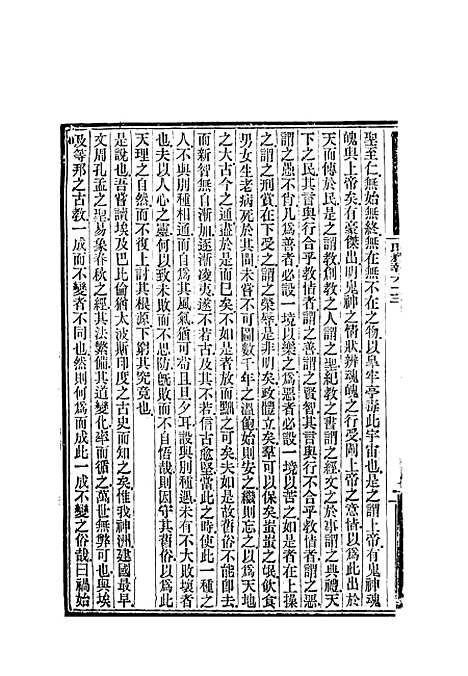 聖至仁無始無終無在無不在之物以臯牢亭毒此宇宙也是之謂上帝有鬼神魂
魄與上帝矣有豪傑出明鬼神之情狀辨魂魄之行受闡上帝之意偕以此出於
天而傳於民是之謂教創教之人謂之聖紀教之書謂之經奉教之事謂之禮天
下之民其言與行合乎教偕者謂之賢智其言與行不合乎教偕者謂之惡
謂之愚不肖凡為善者必設一境以樂之為惡者必設一境以苦之而是在上操
之謂之刑賞在下受之謂之榮辱是非明矣政體立矣羣可以保矣蚩蚩之氓飲食
男女生老病死於其中而不可圖數千年之溫飽始則安之繼則忘之以為天地
之大古今之通盡於是而已矣不如是者放而黜之可矣夫如是故舊俗不能卽去
而新智無自漸加逐漸凌夷遂致其不若信古愈堅當此之時使此一種之
人不與別種相通而自為其風氣猶可苟且旦夕耳設與別種遇未有不大敗壞者
也夫以人心之靈何以致敗而不思防既敗而不自悟哉則因守其舊俗以為此
天理之自然而不復上討其根源下窮其究竟也
是說也吾嘗讀埃及巴比倫猶太波斯印度之古史而知之矣惟我神洲建國最早
文周孔孟之聖易象春秋之經其法繁備其道變化率而循之萬世無弊可也與埃
及等邦之古教一成而不變者不同也然則何為而成此一成不變之俗哉曰禍始